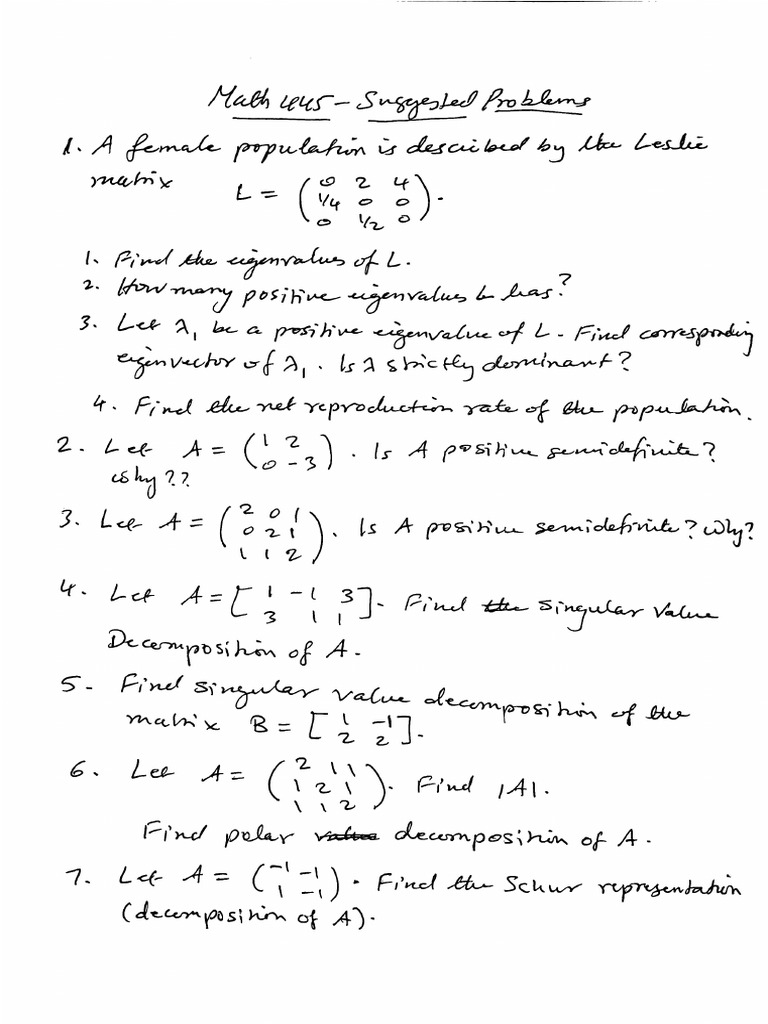 Math 4445 - Suggested Problems
1. A female population is described by the Leslie
matrix L = ( 0 2 4
1/4 0 0
0 1/2 0 ).
1. Find the eigenvalues of L.
2. How many positive eigenvalues L has?
3. Let λ₁ be a positive eigenvalue of L. Find corresponding
eigenvector of λ₁. Is λ strictly dominant?
4. Find the net reproduction rate of the population.
2. Let A = ( 1 2
0 -3 ). Is A positive semidefinite?
Why??
3. Let A = ( 2 0 1
0 2 1
1 1 2 ). Is A positive semidefinite? Why?
4. Let A = [ 1 -1 3
3 1 1 ]. Find the Singular Value
Decomposition of A.
5- Find singular value decomposition of the
matrix B = [ 1 -1
2 2 ].
6. Let A = ( 2 1 1
1 2 1
1 1 2 ). Find |A|.
Find polar value decomposition of A.
7. Let A = ( -1 -1
1 -1 ). Find the Schur representation
(decomposition of A).